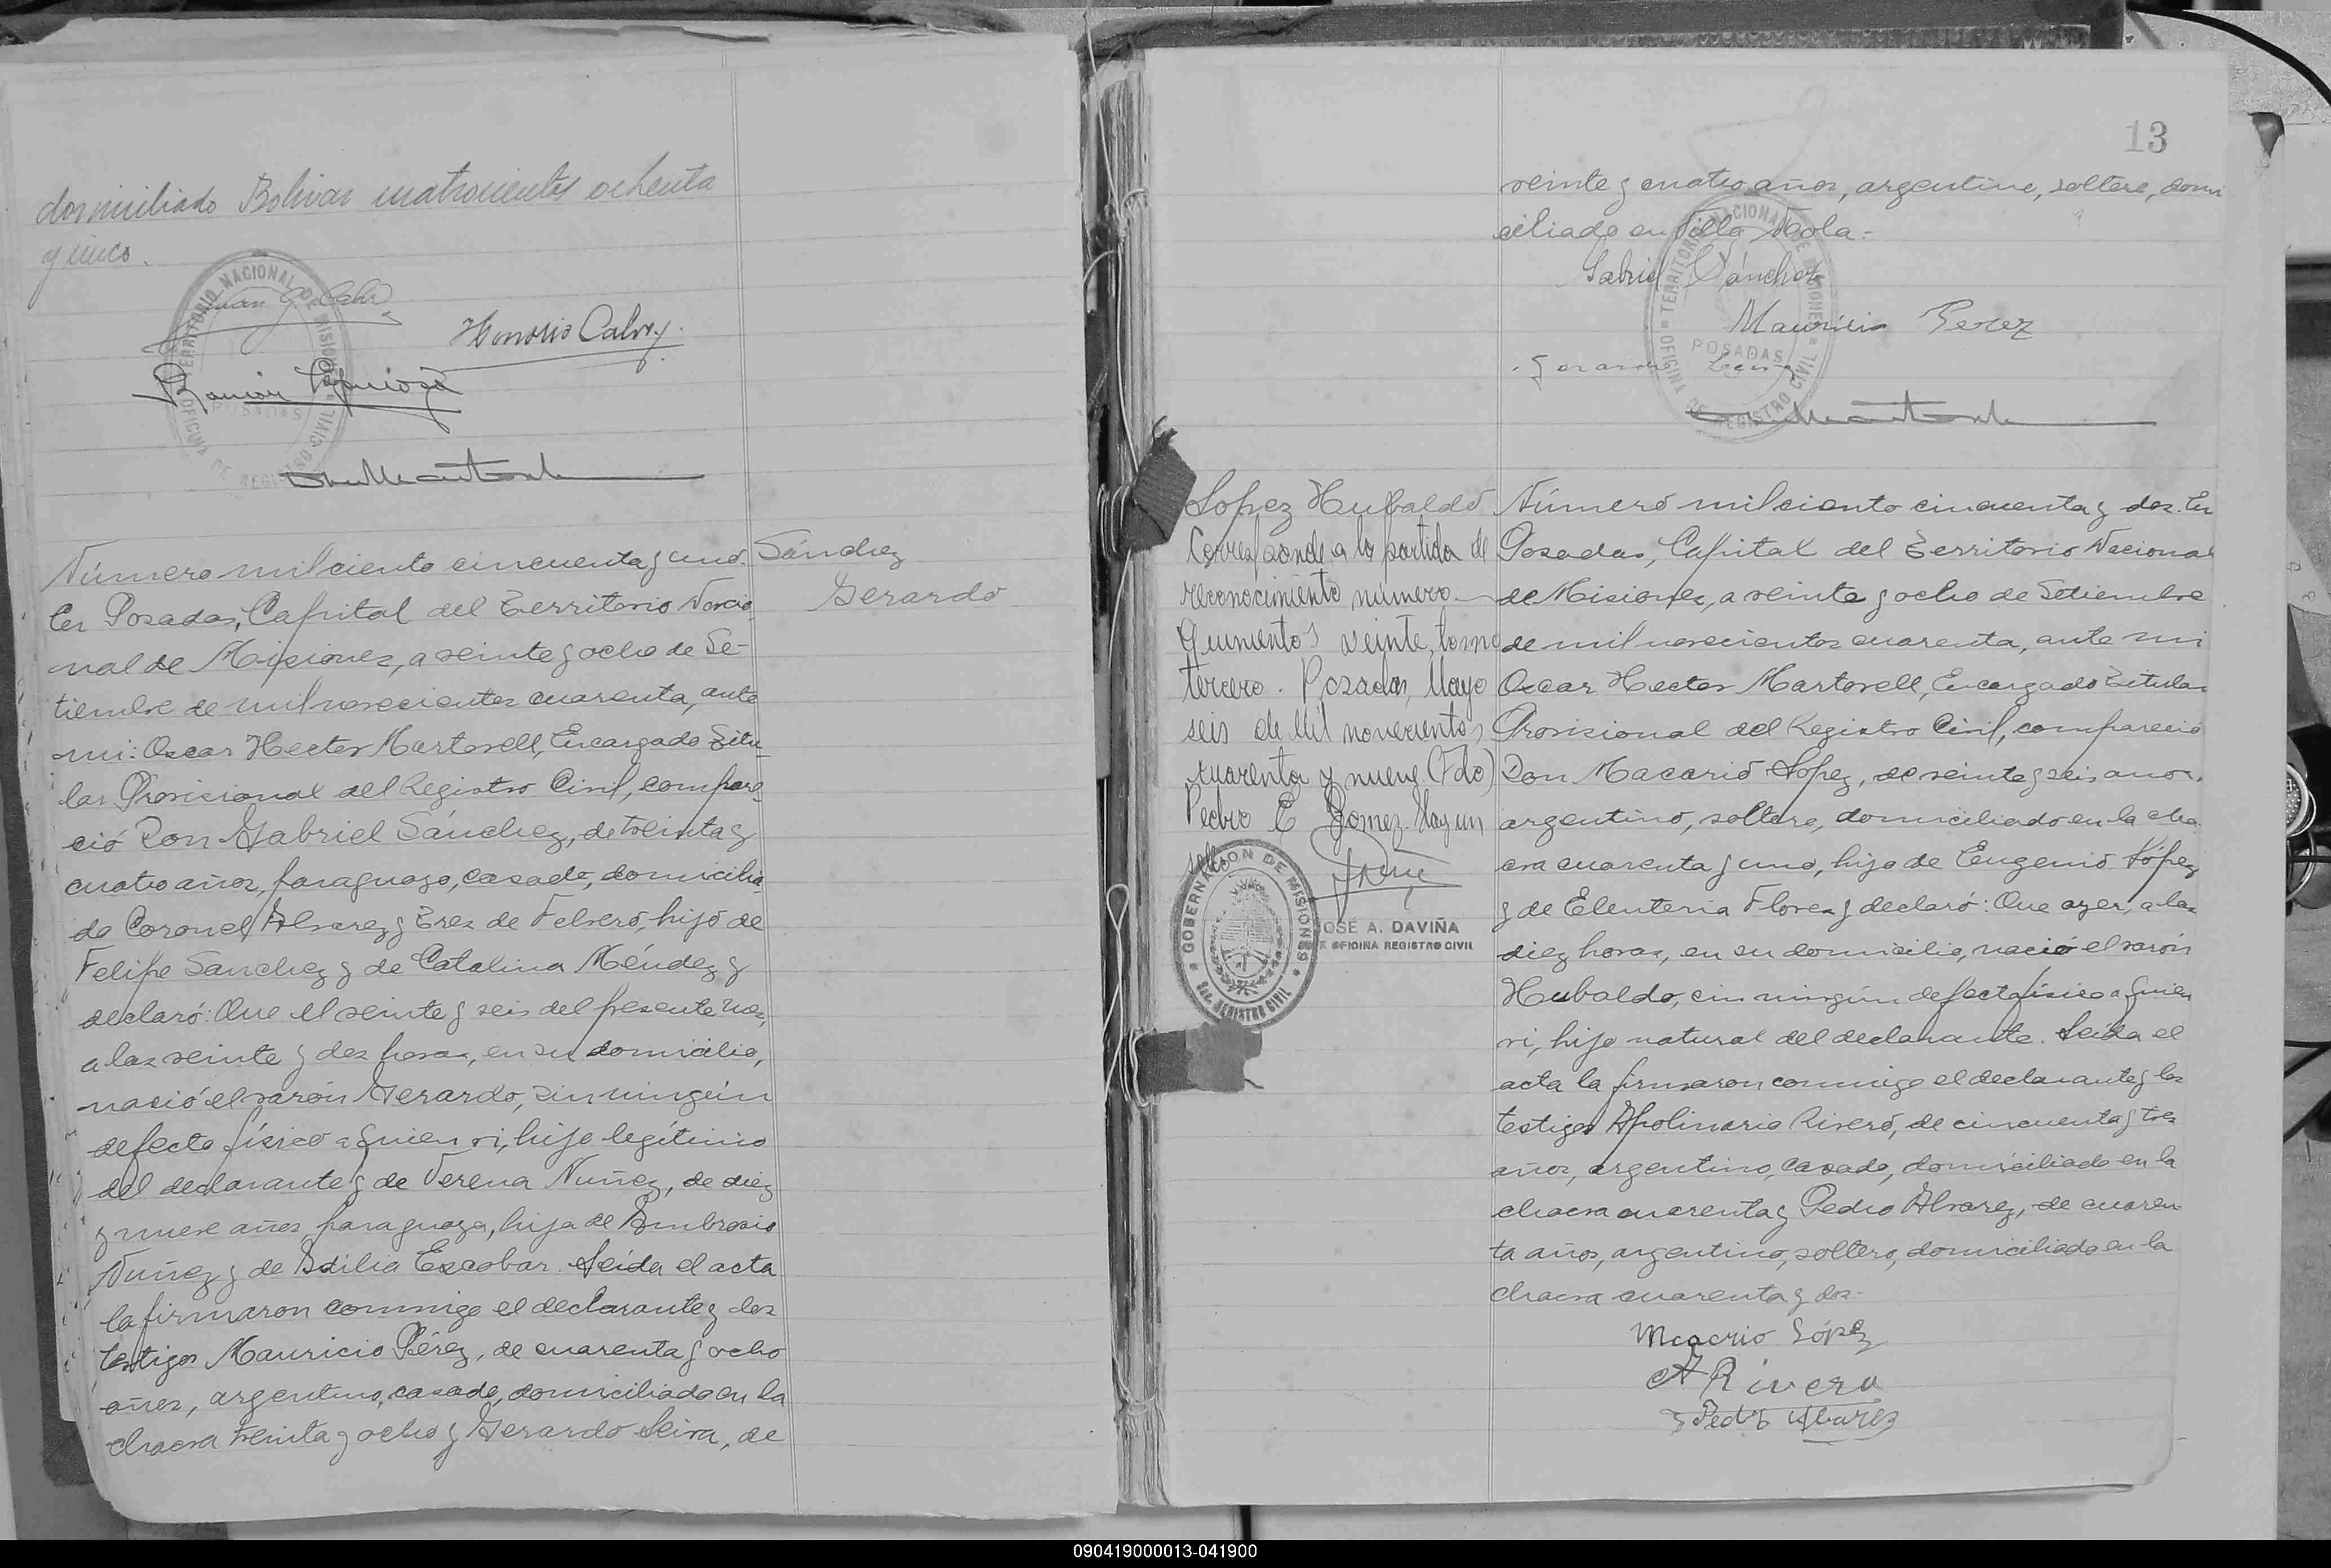 domiciliado Bolivar cuatrocientos ochenta
y cinco.
TERRITORIO NACIONAL DE MISIONES
OFICINA DE REGISTRO CIVIL
POSADAS
Juan G. Calvy
Honorio Calvy.
Ramón Espinoza
Número mil ciento cincuenta y uno.
En Posadas, Capital del Territorio Nacio
nal de Misiones, a veinte y ocho de Se-
tiembre de mil novecientos cuarenta, ante
mi: Oscar Hector Martorell, Encargado Titu
lar Provisional del Registro Civil, compare
ció Don Gabriel Sánchez, de treinta y
cuatro años, paraguayo, casado, domicilia
do Coronel Alvarez y Tres de Febrero, hijo de
Felipe Sanchez y de Catalina Méndez y
declaró: Que el veinte y seis del presente mes,
a las veinte y dos horas, en su domicilio,
nació el varón Gerardo, sin ningún
defecto físico a quien vi, hijo legítimo
del declarante y de Verena Nuñez, de diez
y nueve años, paraguaya, hija de Ambrosio
Nuñez y de Adilia Escobar. Leída el acta
la firmaron conmigo el declarante y los
testigos Mauricio Pérez, de cuarenta y ocho
años, argentino, casado, domiciliado en la
chacra treinta y ocho y Gerardo Leiva, de
Sánchez
Gerardo
13
veinte y cuatro años, argentino, soltero, domi
ciliado en Villa Urola.
TERRITORIO NACIONAL DE MISIONES
OFICINA DE REGISTRO CIVIL
POSADAS
Gabriel Sánchez
Mauricio Perez
Gerardo Leiva
Lopez Hubaldo
Corresponde a la partida de
reconocimiento número
Quinientos veinte, tomo
tercero. Posadas, Mayo
seis de Mil novecientos
cuarenta y nueve. (Fdo)
Pedro E Gomez. Hay un
sello.
GOBERNACION DE MISIONES
REGISTRO CIVIL
JOSÉ A. DAVIÑA
OFICINA REGISTRO CIVIL
Número mil ciento cincuenta y dos. En
Posadas, Capital del Territorio Nacional
de Misiones, a veinte y ocho de Setiembre
de mil novecientos cuarenta, ante mi
Oscar Hector Martorell, Encargado Titular
Provisional del Registro Civil, compareció
Don Macario Lopez, de veinte y seis años,
argentino, soltero, domiciliado en la cha
cra cuarenta y uno, hijo de Eugenio López
y de Eleuteria Flores y declaró: Que ayer, a las
diez horas, en su domicilio, nació el varón
Hubaldo, sin ningún defecto físico a quien
vi, hijo natural del declarante. Leída el
acta la firmaron conmigo el declarante y los
testigos Apolinario Rivero, de cincuenta y tres
años, argentino, casado, domiciliado en la
chacra cuarenta y Pedro Alvarez, de cuaren
ta años, argentino, soltero, domiciliado en la
chacra cuarenta y dos.
Macario López
A Rivero
Pedro Alvarez
090419000013-041900